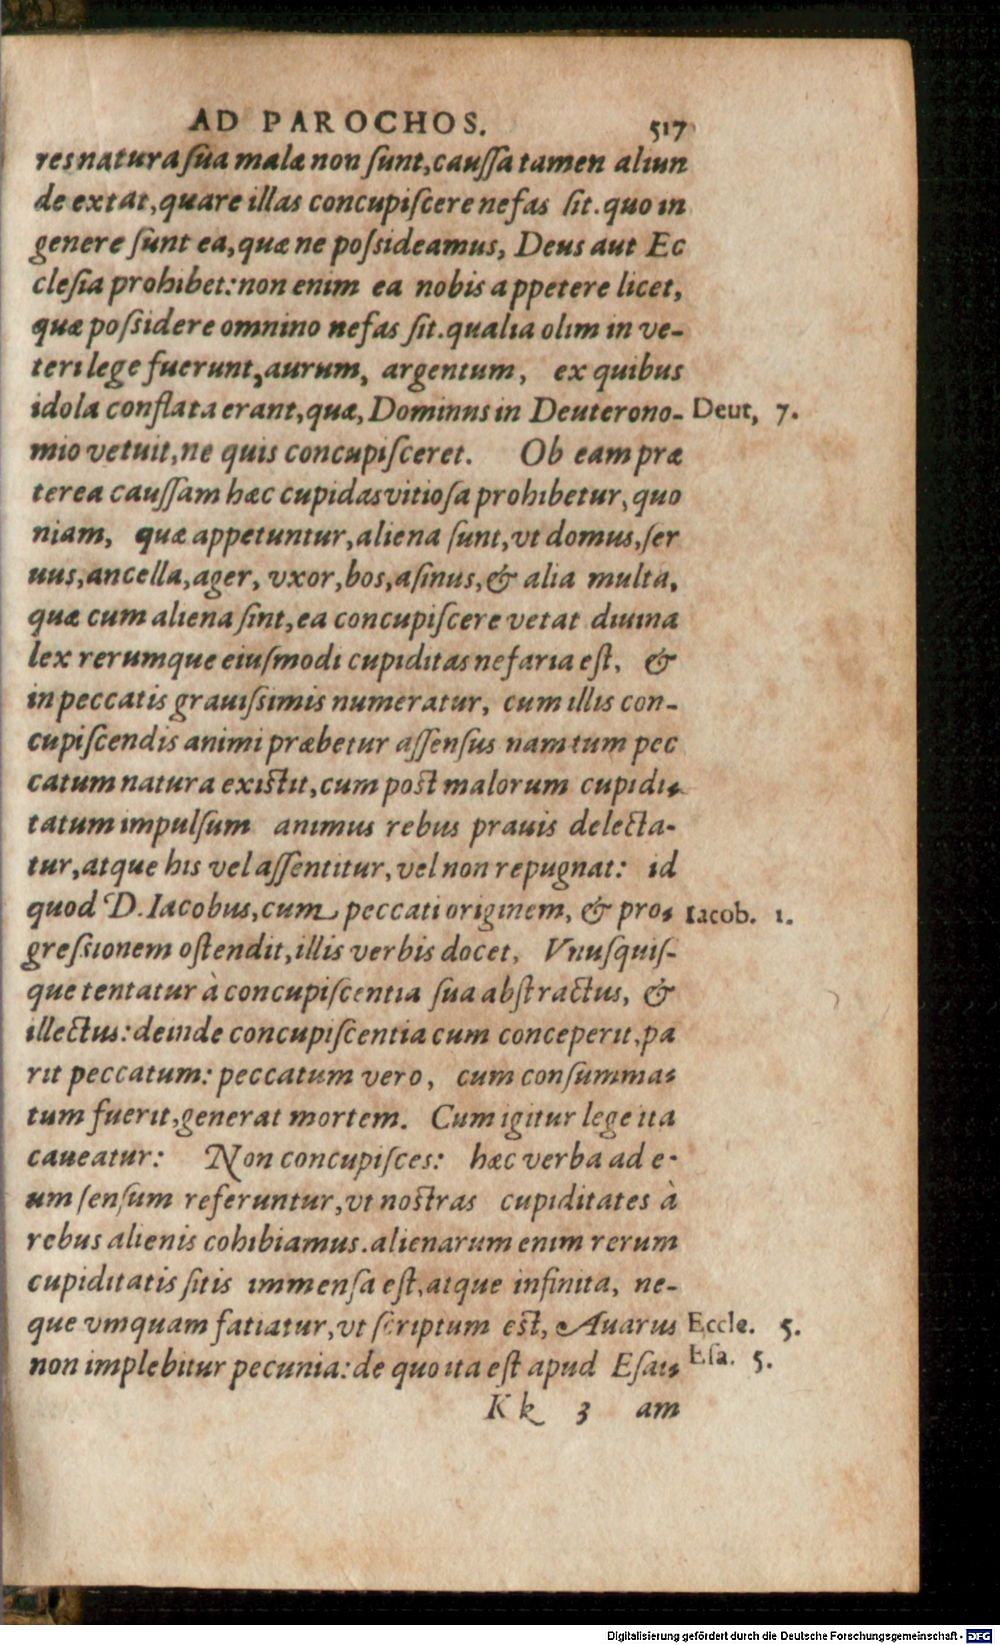 AD PAROCHOS. 517
res natura sua malæ non sunt, caussa tamen aliun
de extat, quare illas concupiscere nefas sit. quo in
genere sunt ea, quæ ne possideamus, Deus aut Ec
clesia prohibet: non enim ea nobis appetere licet,
quæ possidere omnino nefas sit. qualia olim in ve-
teri lege fuerunt, aurum, argentum, ex quibus
idola conflata erant, quæ, Dominus in Deuterono- Deut, 7.
mio vetuit, ne quis concupisceret. Ob eam præ
terea caussam hæc cupidas vitiosa prohibetur, quo
niam, quæ appetuntur, aliena sunt, vt domus, ser
uus, ancella, ager, vxor, bos, asinus, & alia multa,
quæ cum aliena sint, ea concupiscere vetat diuina
lex rerumque eiusmodi cupiditas nefaria est, &
in peccatis grauissimis numeratur, cum illis con-
cupiscendis animi præbetur assensus nam tum pec
catum natura existit, cum post malorum cupidi-
tatum impulsum animus rebus prauis delecta-
tur, atque his vel assentitur, vel non repugnat: id
quod D. Iacobus, cum peccati originem, & pro- Iacob. 1.
gressionem ostendit, illis verbis docet, Vnusquis-
que tentatur à concupiscentia sua abstractus, &
illectus: deinde concupiscentia cum conceperit, pa
rit peccatum: peccatum vero, cum consumma-
tum fuerit, generat mortem. Cum igitur lege ita
caueatur: Non concupisces: hæc verba ad e-
um sensum referuntur, vt nostras cupiditates à
rebus alienis cohibiamus. alienarum enim rerum
cupiditatis sitis immensa est, atque infinita, ne-
que vmquam satiatur, vt scriptum est, Auarus Eccle. 5.
non implebitur pecunia: de quo ita est apud Esai- Esa. 5.
Kk 3 am
Digitalisierung gefördert durch die Deutsche Forschungsgemeinschaft - DFG